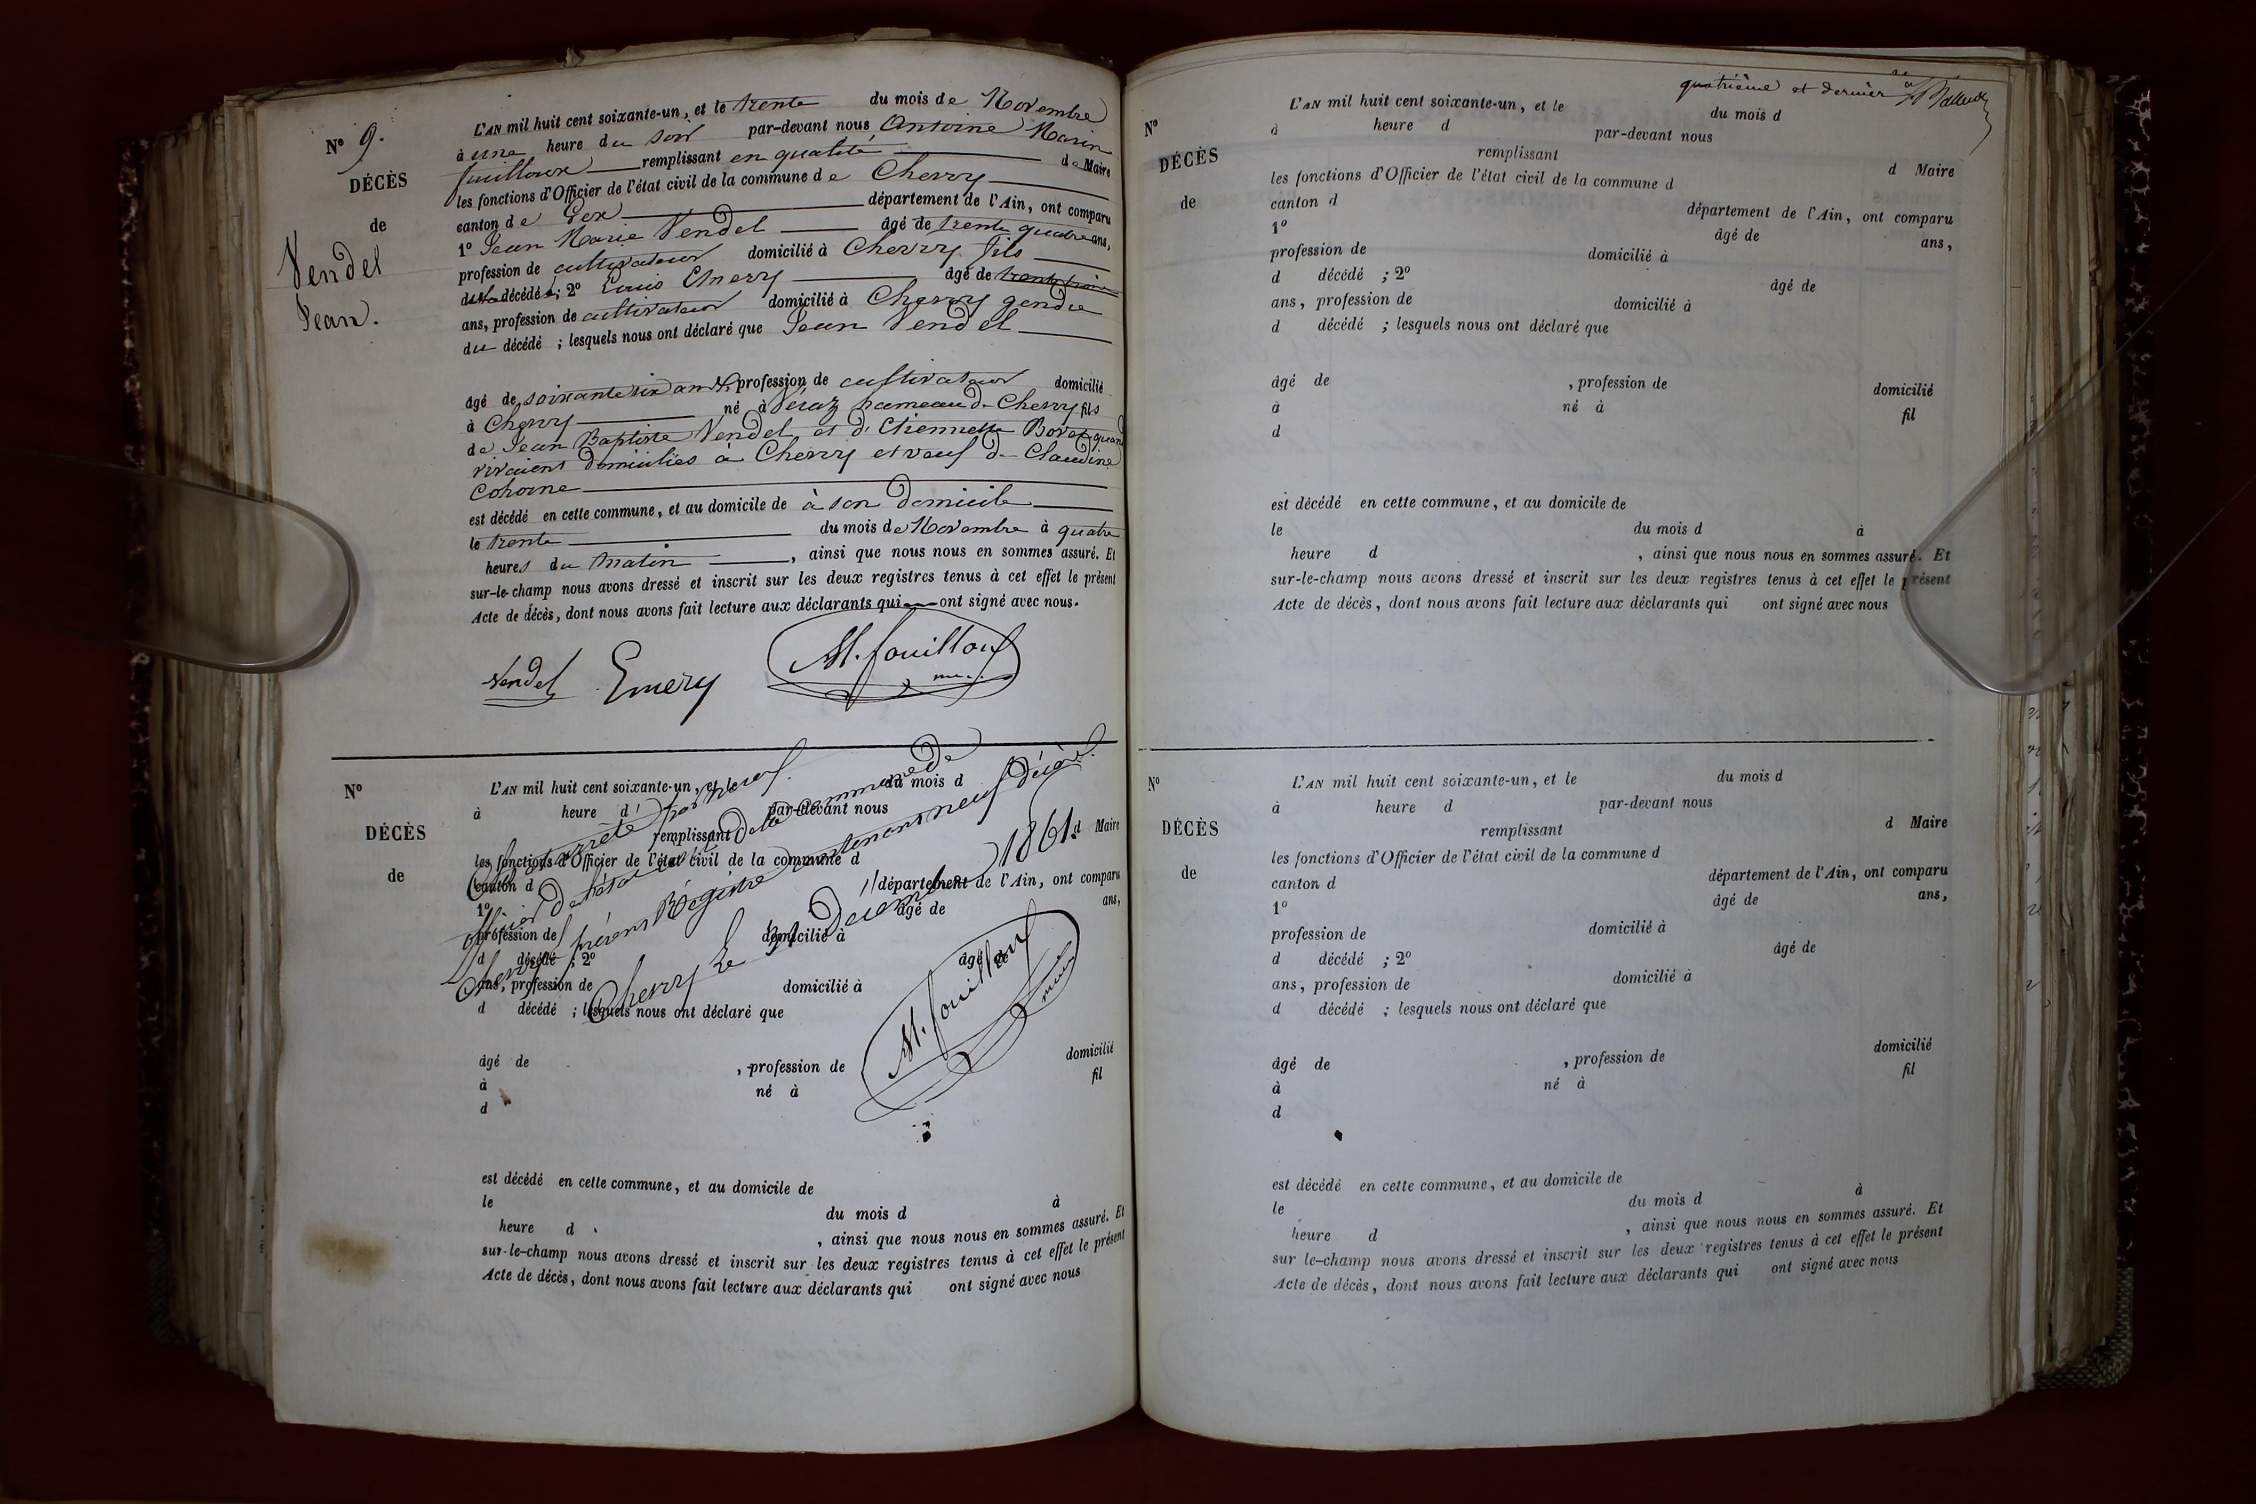 N° 9.
DÉCÈS
de
Vendel
Jean.
L'AN mil huit cent soixante-un, et le trente du mois de Novembre
à une heure du soir par-devant nous Antoine Marin
fouilloux remplissant en qualité de Maire
les fonctions d'Officier de l'état civil de la commune de Chevry
canton de Gex département de l'Ain, ont comparu
1° Jean Marie Vendel âgé de trente quatre ans,
profession de cultivateur domicilié à Chevry fils
du décédé; 2° Louis Emery âgé de
ans, profession de cultivateur domicilié à Chevry gendre
du décédé ; lesquels nous ont déclaré que Jean Vendel
âgé de soixante six ans, profession de cultivateur domicilié
à Chevry né à Véraz hameau de Chevry fils
de Jean Baptiste Vendel et d'Etiennette Bovet quand
vivaient domiciliés à Chevry et veuf de Claudine
est décédé en cette commune, et au domicile de à son domicile
le trente du mois de Novembre à quatre
heures du matin, ainsi que nous nous en sommes assuré. Et
sur-le-champ nous avons dressé et inscrit sur les deux registres tenus à cet effet le présent
Acte de décès, dont nous avons fait lecture aux déclarants qui ont signé avec nous.
Vendel Emery M. fouilloux
N°
DÉCÈS
de
L'AN mil huit cent soixante-un, et le du mois d
à heure d par-devant nous
remplissant d Maire
les fonctions d'Officier de l'état civil de la commune d
canton d département de l'Ain, ont comparu
1° âgé de ans,
profession de domicilié à
d décédé ; 2° âgé de
ans, profession de domicilié à
d décédé ; lesquels nous ont déclaré que
arrêté par nous.
officier de l'état civil de la commune de
Chevry présent Régistre contenant neuf décès.
Chevry le 31 Décembre 1861.
M. fouilloux
maire
âgé de , profession de domicilié
à né à fil
d
est décédé en cette commune, et au domicile de
le du mois d à
heure d , ainsi que nous nous en sommes assuré. Et
sur-le-champ nous avons dressé et inscrit sur les deux registres tenus à cet effet le présent
Acte de décès, dont nous avons fait lecture aux déclarants qui ont signé avec nous
quatrième et dernier
N°
DÉCÈS
de
L'AN mil huit cent soixante-un, et le du mois d
à heure d par-devant nous
remplissant d Maire
les fonctions d'Officier de l'état civil de la commune d
canton d département de l'Ain, ont comparu
1° âgé de ans,
profession de domicilié à
d décédé ; 2° âgé de
ans, profession de domicilié à
d décédé ; lesquels nous ont déclaré que
âgé de , profession de domicilié
à né à fil
d
est décédé en cette commune, et au domicile de
le du mois d à
heure d , ainsi que nous nous en sommes assuré. Et
sur-le-champ nous avons dressé et inscrit sur les deux registres tenus à cet effet le présent
Acte de décès, dont nous avons fait lecture aux déclarants qui ont signé avec nous
N°
DÉCÈS
de
L'AN mil huit cent soixante-un, et le du mois d
à heure d par-devant nous
remplissant d Maire
les fonctions d'Officier de l'état civil de la commune d
canton d département de l'Ain, ont comparu
1° âgé de ans,
profession de domicilié à
d décédé ; 2° âgé de
ans, profession de domicilié à
d décédé ; lesquels nous ont déclaré que
âgé de , profession de domicilié
à né à fil
d
est décédé en cette commune, et au domicile de
le du mois d à
heure d , ainsi que nous nous en sommes assuré. Et
sur le-champ nous avons dressé et inscrit sur les deux registres tenus à cet effet le présent
Acte de décès, dont nous avons fait lecture aux déclarants qui ont signé avec nous